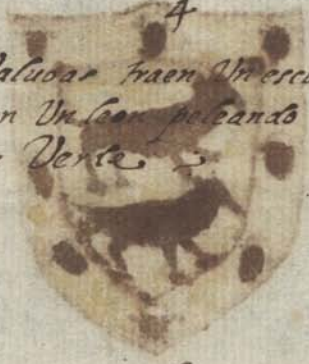 4
traen Un escu
n Un leon peleando
Verte